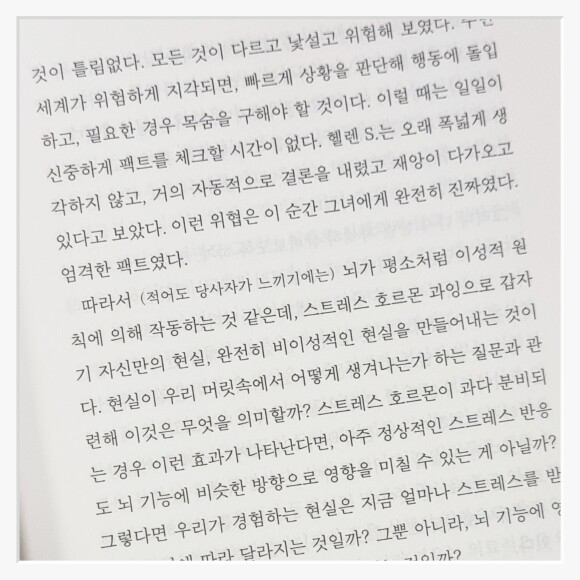 것이 틀림없다. 모든 것이 다르고 낯설고 위험해 보였다.
세계가 위험하게 지각되면, 빠르게 상황을 판단해 행동에 돌입
하고, 필요한 경우 목숨을 구해야 할 것이다. 이럴 때는 일일이
신중하게 팩트를 체크할 시간이 없다. 헬렌 S.는 오래 폭넓게 생
각하지 않고, 거의 자동적으로 결론을 내렸고 재앙이 다가오고
있다고 보았다. 이런 위협은 이 순간 그녀에게 완전히 진짜였다.
엄격한 팩트였다.
따라서 (적어도 당사자가 느끼기에는) 뇌가 평소처럼 이성적 원
칙에 의해 작동하는 것 같은데, 스트레스 호르몬 과잉으로 갑자
기 자신만의 현실, 완전히 비이성적인 현실을 만들어내는 것이
다. 현실이 우리 머릿속에서 어떻게 생겨나는가 하는 질문과 관
련해 이것은 무엇을 의미할까? 스트레스 호르몬이 과다 분비되
는 경우 이런 효과가 나타난다면, 아주 정상적인 스트레스 반응
도 뇌 기능에 비슷한 방향으로 영향을 미칠 수 있는 게 아닐까?
그렇다면 우리가 경험하는 현실은 지금 얼마나 스트레스를 받
따라 달라지는 것일까? 그뿐 아니라, 뇌 기능에